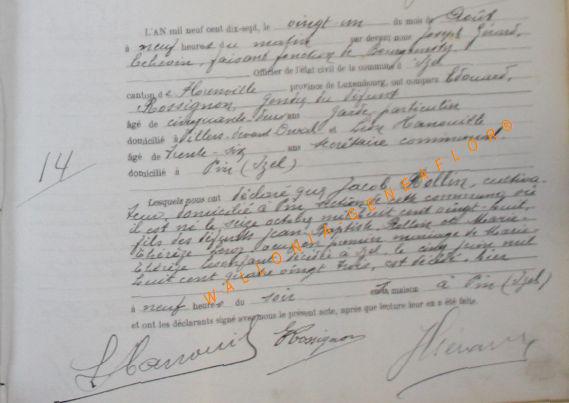 L'AN mil neuf cent dix-sept, le vingt un du mois de Août
à neuf heures du matin par devant nous Joseph
Echevin, faisant fonction de Bourgmestre
Officier de l'état civil de la commune d'Izel
canton de Florenville province de Luxembourg, ont comparu Edouard
Rossignon, gendre du défunt
âgé de cinquante deux ans Garde particulier
domicilié à Villers-devant-Orval et Léon Hanouille
âgé de trente-six ans secrétaire communal
domicilié à Pin (Izel)
14
Lesquels nous ont déclaré que Jacob Pollin, cultiva-
teur, domicilié à Pin section de cette commune où
il est né le seize octobre mil huit cent vingt-huit,
fils des défunts Jean-Baptiste Pollin et Marie-
Thérèse veuf en premier mariage de Marie-
Thérèse décédée à Izel, le cinq juin mil
huit cent quatre vingt trois, est décédé hier
à neuf heures du soir en sa maison à Pin (Izel)
et ont les déclarants signé avec nous le présent acte, après que lecture leur en a été faite.
L Hanouille E Rossignon
WALLONIA-GENEAFLOR®